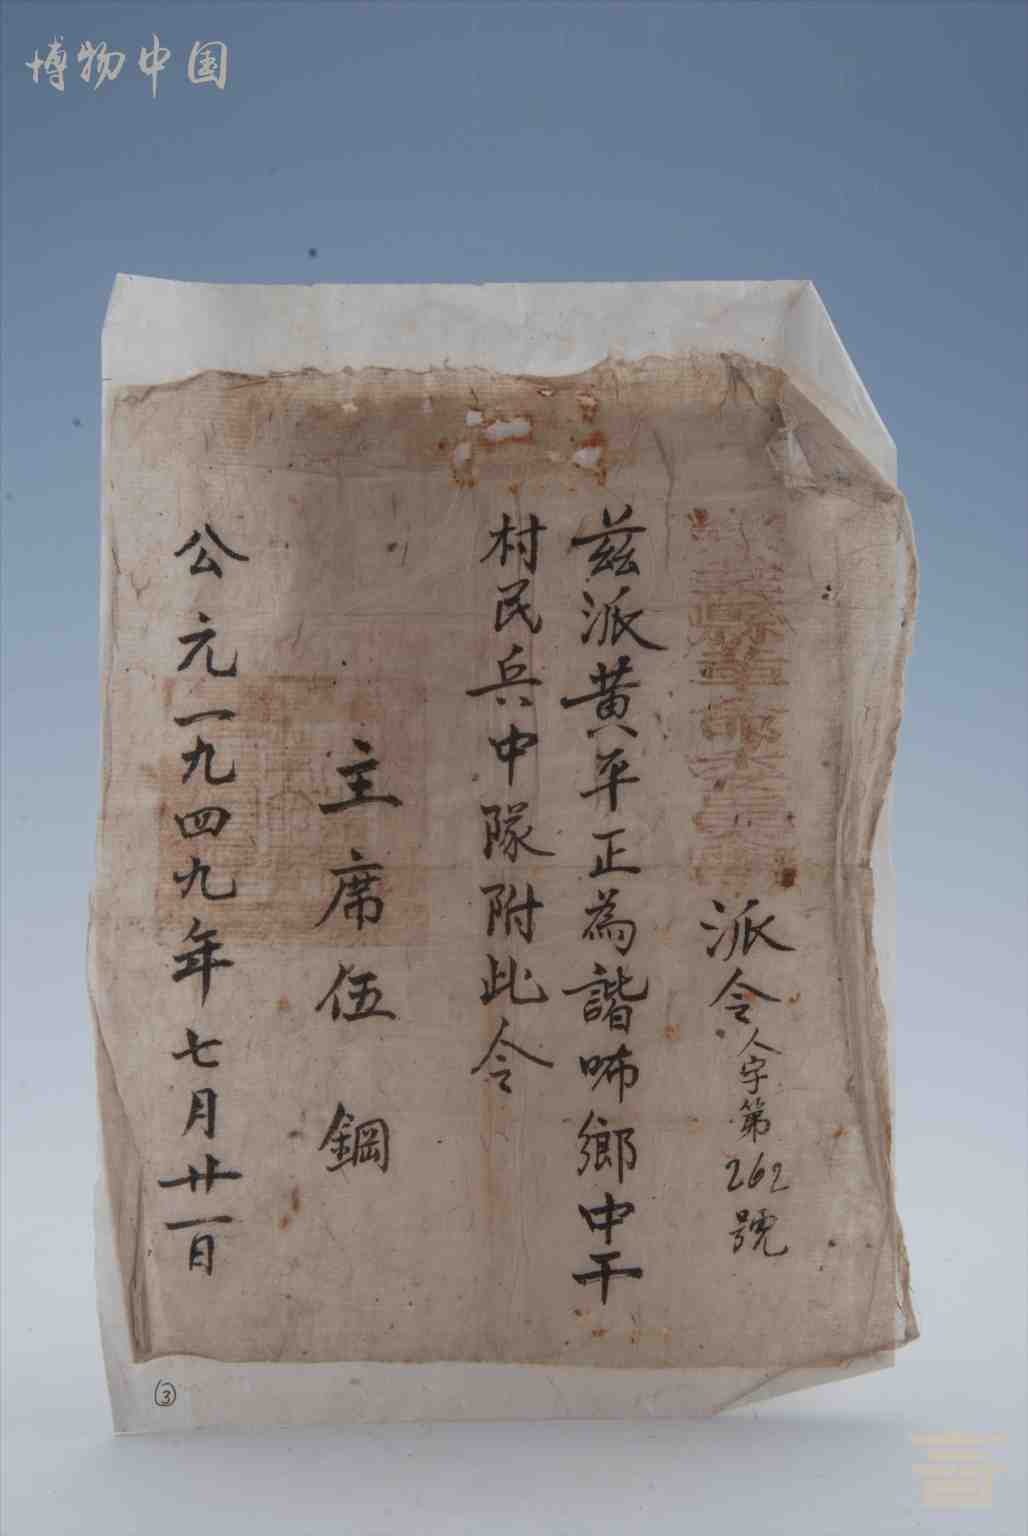 博物中国
派令人字第262號
茲派黄平正為諧㖊鄉中干
村民兵中隊附此令
主席伍鋼
公元一九四九年七月廿一日
③